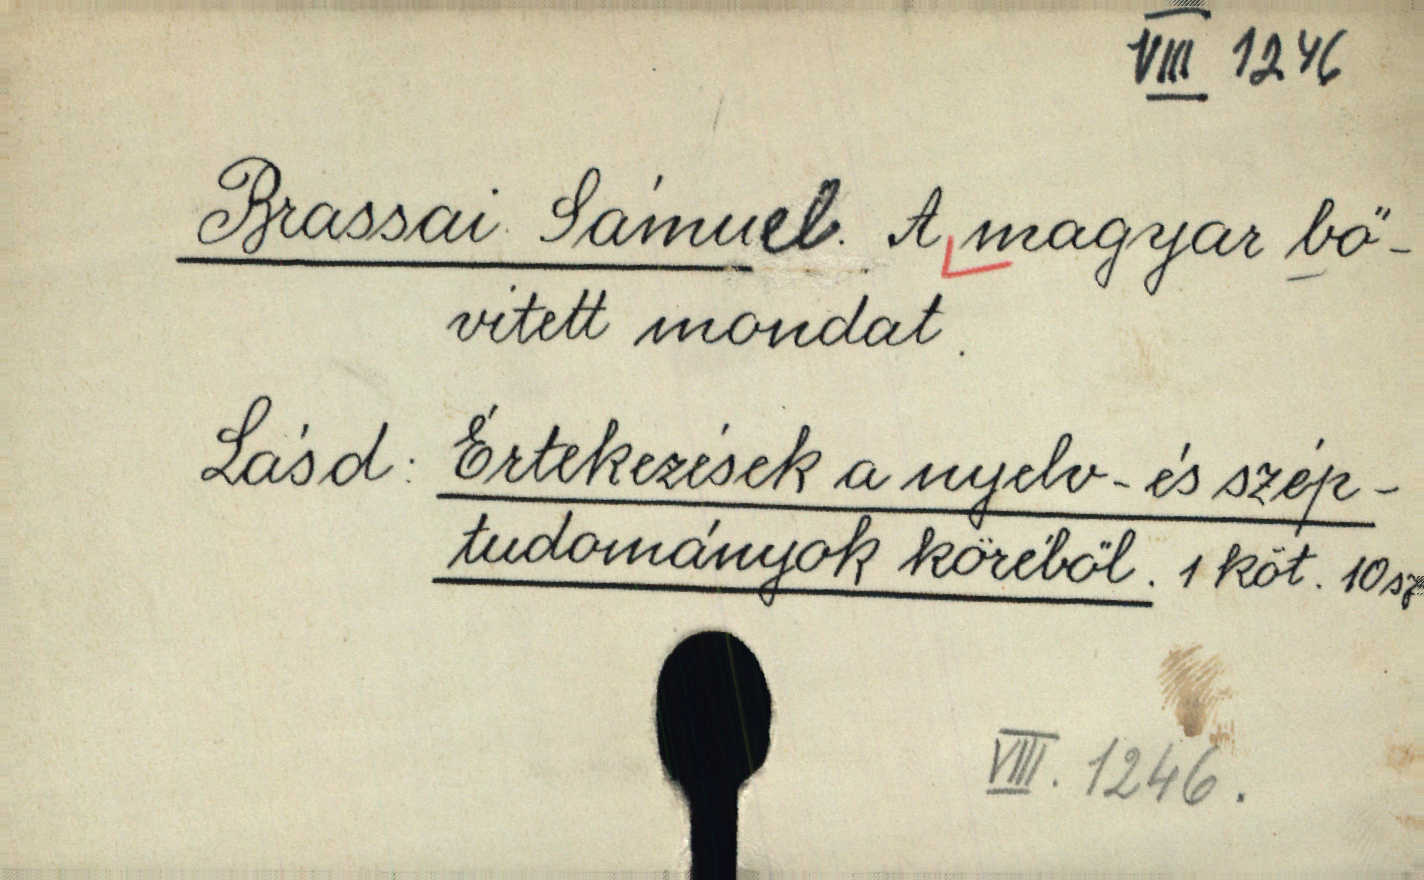 VIII 1246
Brassai Sámuel. A magyar bő-
vitett mondat.
Lásd: Értekezések a nyelv- és szép-
tudományok köréből. 1 köt. 10 sz
VIII. 1246.